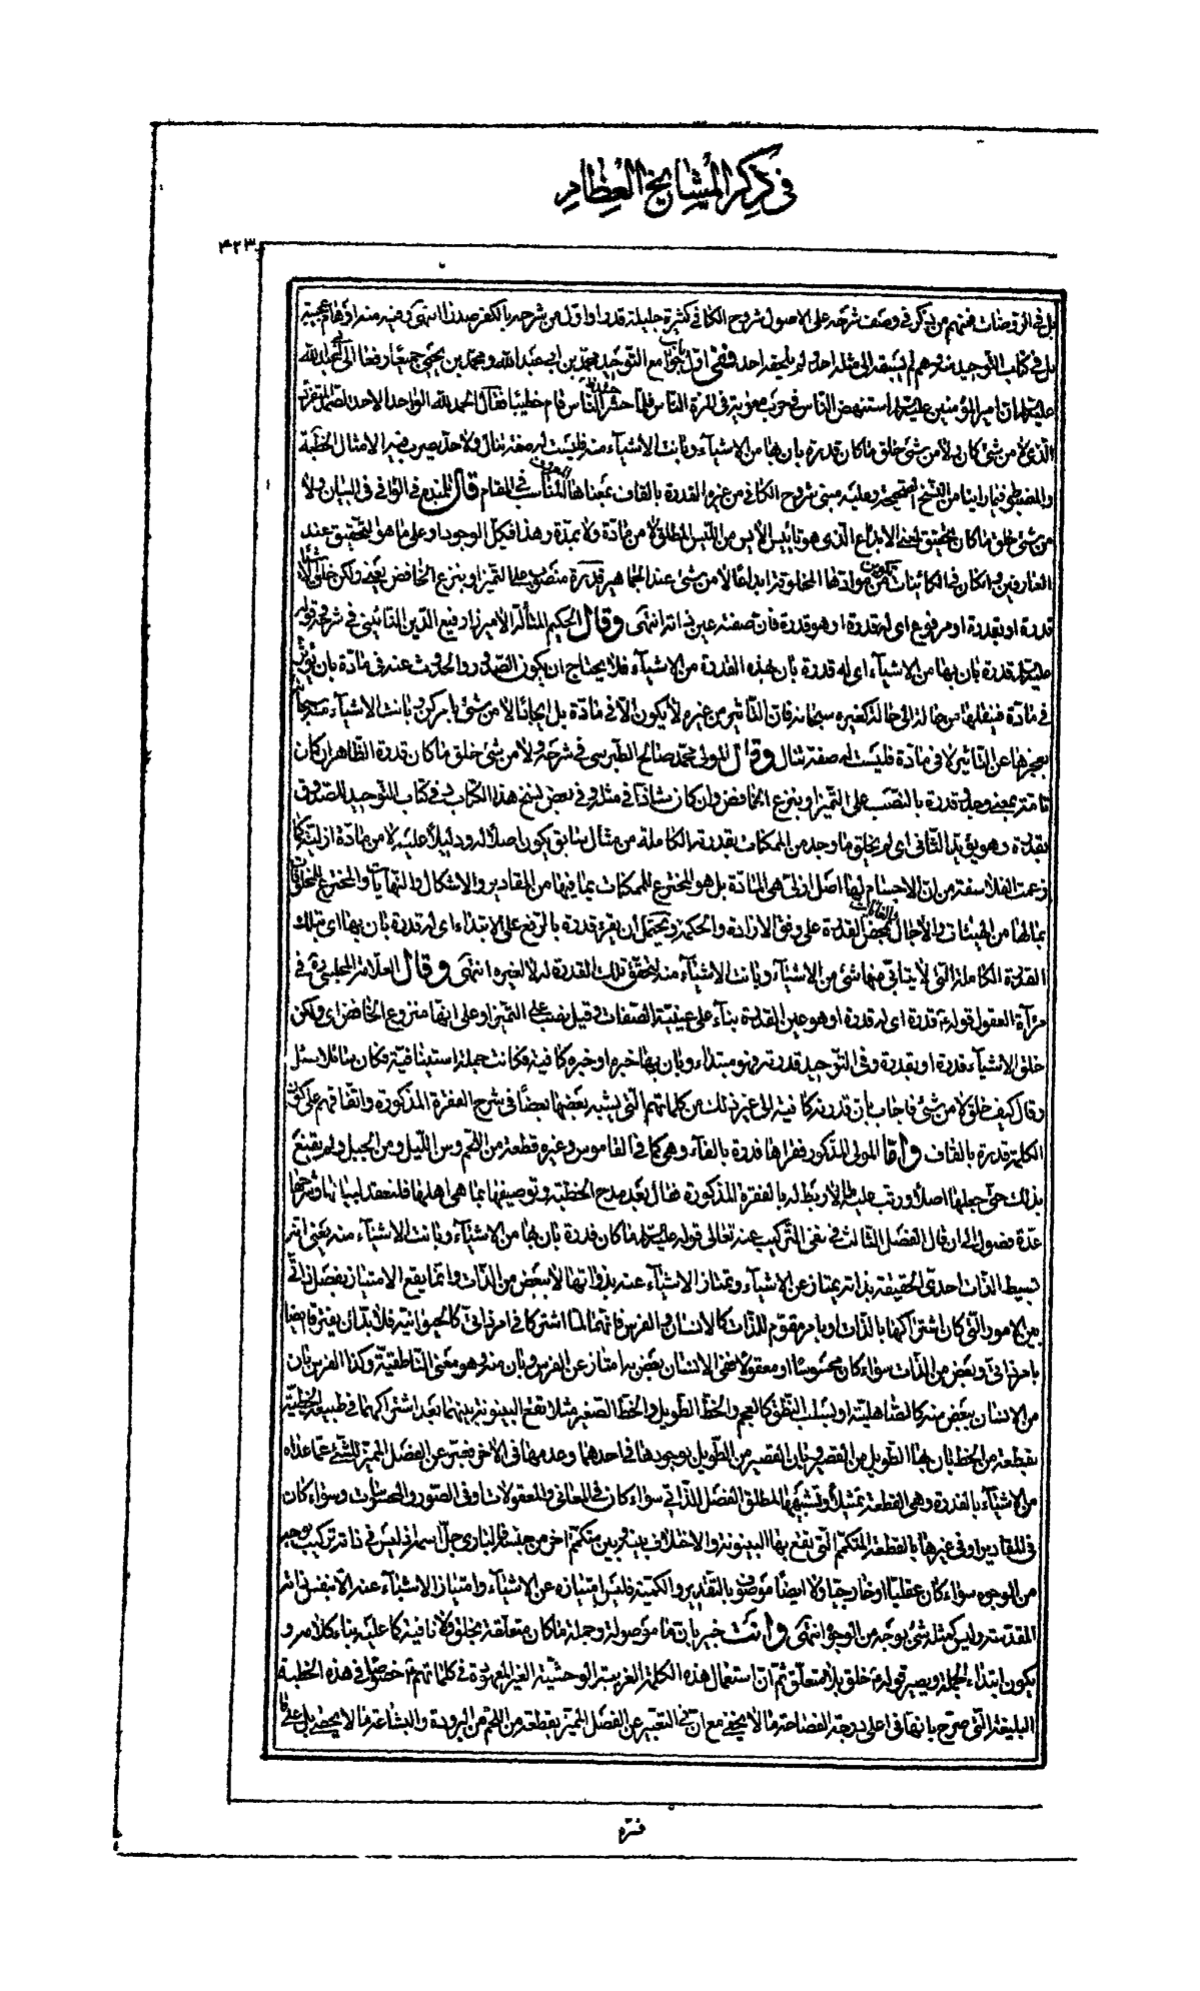 في ذكر المشايخ العظام
۴۲۳
بل في الروضات فمنهم من يذكر في وصف شرحه على الاصول شروح الكافي كثيرة جليلة قدرا واول من شرحه بالكفر صدرا انتهى وفيه منه اوهام عجيبة
بل في كتاب التوحيد منه وهم لم يسبقه الى مثله احد ولم يلحقه احد ففي اول باب جوامع التوحيد محمد بن ابي عبد الله ومحمد بن يحيى جميعا رفعاه الى ابي عبد الله
عليه السلام ان امير المؤمنين عليه السلام استنهض الناس في حرب معوية في المرة الثانية فلما حشد الناس قام خطيبا فقال الحمد لله الواحد الاحد الصمد المتفرد
الذي لا من شئ كان ولا من شئ خلق ما كان قدرة بان بها من الاشياء وبانت الاشياء منه فليست له صفة تنال ولا حد يضرب فيه الامثال الخطبة
والمضبوط فيما راينا من النسخ الصحيحة وعليه مبنى شروح الكافي من غيره القدرة بالقاف بمعناها المعروف المناسب في المقام قال في الوافي في البيان ولا
من شئ خلق ما كان تحقيق لمعنى الابداع الذي هو تأييس الايس من الليس المطلق لا من مادة ولا بمدة وهذا في كل الوجود او على ما هو التحقيق عند
العارفين وان كان في الكائنات تكوين من موادها المخلوقة ابداعا لا من شئ عند الجماهير قدرة منصوب على التميز او بنزع الخافض يعني ولكن خلق الاشياء
قدرة او بقدرة او مرفوع اى له قدرة او هو قدرة فان صفته عين ذاته انتهى وقال الحكيم المتأله الاميرزا رفيع الدين النائيني في شرحه قوله
عليه السلام قدرة بان بها من الاشياء اى له قدرة بان بهذه القدرة من الاشياء فلا يحتاج ان يكون الصدور والحدوث عنه في مادة بان يؤثر
في مادة فينقلها من حالة الى حالة كغيره سبحانه فان التاثير من غيره لا يكون الا في مادة بل ايجاد لا من شئ بامر كن وبانت الاشياء منه سبحانه
بعجزها عن التاثير لا في مادة فليست له صفة تنال وقال المولى محمد صالح الطبرسي في شرحه ولا من شئ خلق ما كان قدرة الظاهر ان كان
تامة بمعنى وجد وقدرة بالنصب على التميز او بنزع الخافض وان كان شاذا في مثله وفي بعض نسخ هذا الكتاب وفي كتاب التوحيد للصدوق
بقدرة وهو يؤيد الثاني اى لم يخلق ما وجد من الممكنات بقدرته الكاملة من مثال سابق يكون اصلا له ودليلا عليه لا من مادة ازلية كما
زعمت الفلاسفة من ان الاجسام لها اصل ازلي هي المادة بل هو المخترع للممكنات بما فيها من المقادير والاشكال والنهايات والمخترع للمخلوقات
بمالها من الهيئات والآجال والغايات بمحض القدرة على وفق الارادة والحكمة ويحتمل ان يقرء قدرة بالرفع على الابتداء اى له قدرة بان بها اى بتلك
القدرة الكاملة التي لا يتابى منها شئ من الاشياء وبانت الاشياء منه لتحقق تلك القدرة له لا لغيره انتهى وقال العلامة المجلسي ره في
مرآة العقول قوله ع قدرة اى له قدرة او هو عين القدرة بناء على عينية الصفات وقيل نصب على التميز او على انها منزوع الخافض اى ولكن
خلق الاشياء قدرة او بقدرة وفي التوحيد قدرته فهو مبتداء وبان بها خبره او خبره كافية فكانت جملة استينافية فكان سائلا سئل
وقال كيف خلق لا من شئ فاجاب بان قدرته كافية الى غير ذلك من كلماتهم التي يشبه بعضها بعضا في شرح الفقرة المذكورة واتفاقهم على كون
الكلمة قدرة بالقاف واما المولى المذكور فقراها فدرة بالفاء وهي كما في القاموس وغيره قطعة من اللحم ومن الليل ومن الجبل ولم يقنع
بذلك حتى جعلها اصلا ورتب عليه ما لا ربط له بالفقرة المذكورة فقال بعد مدح الخطبة وتوصيفها بما هي اهلها فلنعقد لبيانها وشرحها
عدة فصول الى ان قال الفصل الثالث في نفي التركيب عنه تعالى قوله عليه السلام ما كان فدرة بان بها من الاشياء وبانت الاشياء منه يعني انه
بسيط الذات احدي الحقيقة بذاته يمتاز عن الاشياء وتمتاز الاشياء عنه بذواتها لا ببعض من الذات وانما يقع الامتياز بفصل ذاتي
بين الامور التي كان اشتراكها بالذات او بامر مقوم للذات كالانسان والفرس فانهما لما اشتركا في امر ذاتي كالحيوانية فلا بد ان يفترقا ايضا
بامر ذاتي وبعض من الذات سواء كان محسوسا او معقولا ففي الانسان بعض به امتاز عن الفرس وبان منه وهو معنى الناطقية وكذا الفرس بان
من الانسان ببعض منه كالصاهلية او بسلب النطق كالعجم والخط الطويل والخط الصغير مثلا تقع البينونة بينهما بعد اشتراكهما في طبيعة الخطية
بقطعة من الخط بان بها الطويل من القصير وبان القصير من الطويل بوجودها في احدهما وعدمها في الآخر فعبر عن الفصل المميز للشئ عما عداه
من الاشياء بالفدرة وهي القطعة تمثيلا وتشبيها لمطلق الفصل الذاتي سواء كان في المعاني والمعقولات او في الصور والمحسوسات وسواء كان
في المقادير او في غيرها بالقطعة المتكمم التي يقع بها البينونة والاختلاف بينه وبين متكمم آخر من جنسه فالباري جل اسمه اذ ليس في ذاته تركيب بوجه
من الوجوه سواء كان عقليا او خارجيا ولا ايضا موصوف بالتقدير والكمية فليس امتيازه عن الاشياء وامتياز الاشياء عنه الا بنفس ذاته
المقدسة وليس كمثله شئ بوجه من الوجوه انتهى وانت خبير بان ما موصولة وجملة ما كان متعلقة بخلق ولا نافية كما عليه بناء كلامه و
يكون ابتداء الجملة ويصير قوله ع خلق بلا متعلق ثم ان استعمال هذه الكلمة الغريبة الوحشية الغير المعهودة في كلماتهم ع خصوصا في هذه الخطبة
البليغة التي صرح بانها في اعلى درجة الفصاحة مما لا يخفى مع ان في التعبير عن الفصل المميز بقطعة من اللحم من البرودة والبشاعة ما لا يحصى بل على ما
فسره